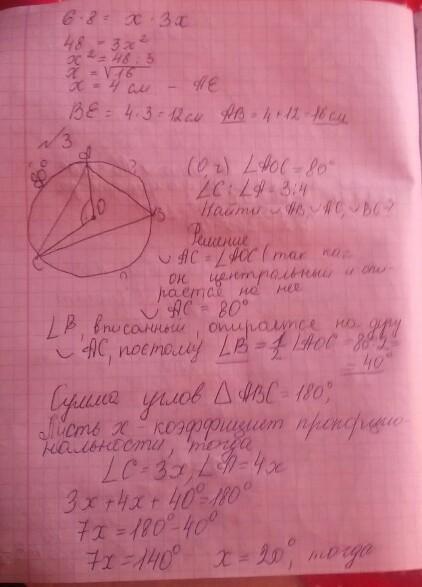 6·8 = x·3x
48 = 3x²
x² = 48:3
x = √16
x = 4 см - AE
BE = 4·3 = 12 см AB = 4+12 = 16 см
√3
A 80° ? O B C ?
(O, r) ∠AOC = 80°
∠C : ∠A = 3:4
Найти ◡AB ◡AC, ◡BC?
Решение
◡AC = ∠AOC (так как
он центральный и опи-
рается на нее
◡AC = 80°
∠B, вписанный, опирается на дугу
◡AC, поэтому ∠B = 1/2 ∠AOC = 80:2
= 40°
Сумма углов △ABC = 180°,
Пусть x - коэффициент пропорцио-
нальности, тогда
∠C = 3x, ∠A = 4x
3x + 4x + 40° = 180°
7x = 180° - 40°
7x = 140° x = 20°, тогда